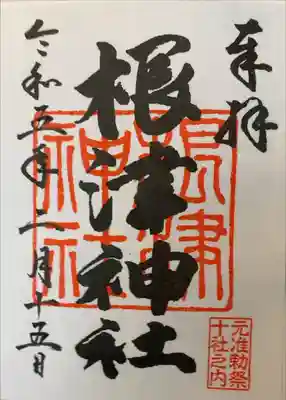 奉拝
根津神社
根津神社
令和五年二月十五日
元准勅祭
十社之内